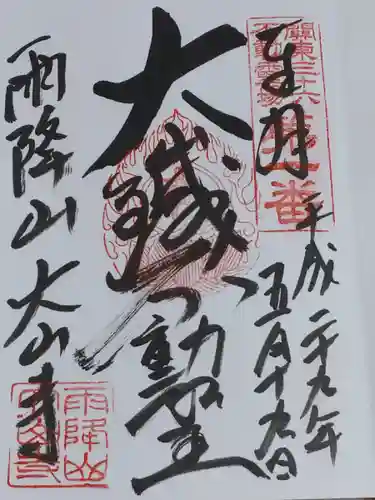 奉拝
平成二十九年
五月十九日
關東三十六
不動霊場
第一番
大鐵不動
堂
雨降山大山寺
雨降山